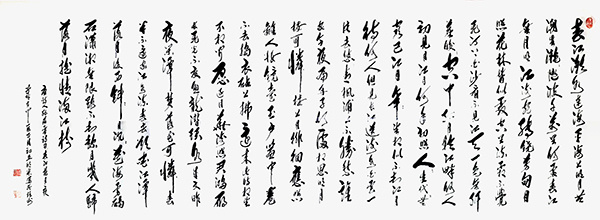 春江潮水连海平海上明月共
潮生滟滟随波千万里何处春江
无月明江流宛转绕芳甸月
照花林皆似霰空里流霜不觉
飞汀上白沙看不见江天一色无纤
尘皎皎空中孤月轮江畔何人
初见月江月何年初照人人生代代
无穷已江月年年望相似不知江月
待何人但见长江送流水白云一
片去悠悠青枫浦上不胜愁谁
家今夜扁舟子何处相思明月
楼可怜楼上月徘徊应照
离人妆镜台玉户帘中卷
不去捣衣砧上拂还来此时相望
不相闻愿逐月华流照君鸿雁
长飞光不度鱼龙潜跃水成文昨
夜闲潭梦落花可怜春
半不还家江水流春去欲尽江潭
落月复西斜斜月沉沉藏海雾碣
石潇湘无限路不知乘月几人归
落月摇情满江树